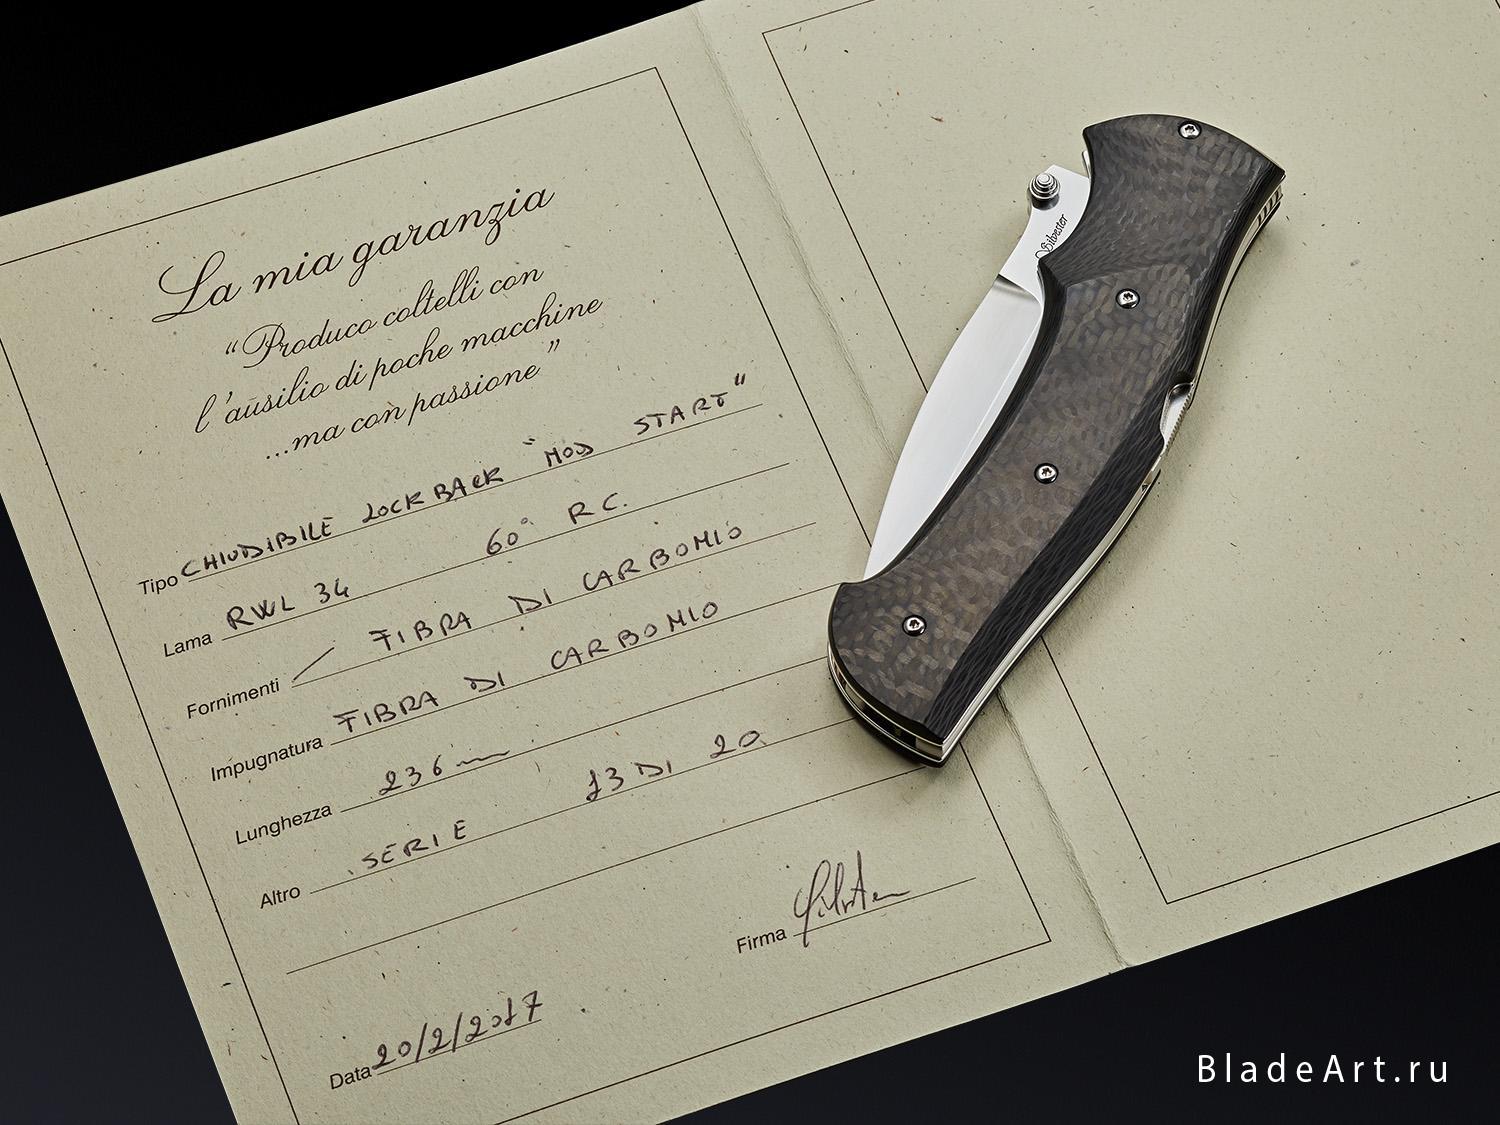 La mia garanzia
“Produco coltelli con
l'ausilio di poche macchine
...ma con passione”
Tipo CHIUDIBILE LOCK BACK "MOD START"
Lama RWL 34 60° R C.
Fornimenti / FIBRA DI CARBONIO
Impugnatura FIBRA DI CARBONIO
Lunghezza 236 mm
Altro SERIE 13 DI 20
Firma Silvester
Data 20/2/2017
Silvester
BladeArt.ru